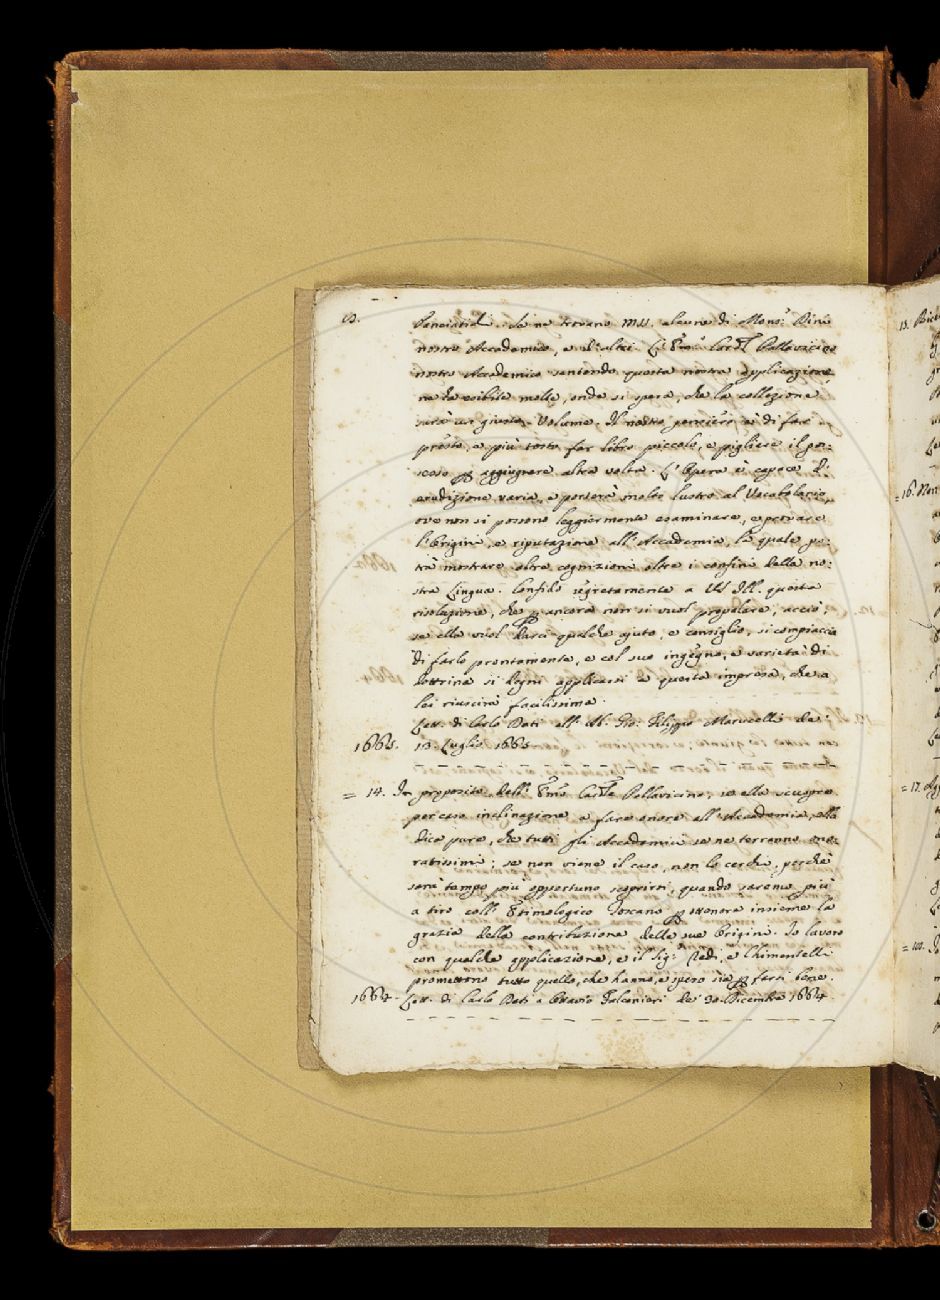 Panciatichi. Se ne trovano MSS. alcune di Mons.r Dini
nostro Accademico, e d'altri. L'Em.o Card.l Pallavicino
nostro Accademico sentendo questa nostra applicazione
ne ha esibite molte, onde si spera, che la collezione
sarà un giusto Volume. Il nostro pensiero è di far
presto, e più tosto far libro piccolo, e pigliare il po:
scoso aggiugnere altra volta. L'Opera è capace d'
erudizione varia, e porterà molto lustro al Vocabolario,
ove non si possono leggiermente esaminare, e
l'Origini, e riputazione all'Accademia, la quale po:
trà mostrare oltre cognizione oltre i confini della no:
stra Lingua. Confido segretamente a VS Ill. questa
risoluzione, che ancora non si vuol propalare, acciò,
se ella vuol darci qualche ajuto, e consiglio, si compiaccia
di farlo prontamente, e col suo ingegno, e varietà di
dottrina si degni applicarsi a questa impresa, che a
lei riuscirà facilissima.
Lett. di Carlo Dati all' Ab. Gio: Filippo Marucelli de'
1665. 13. Luglio 1665
= 14. In proposito dell' Em.o Card.le Pallavicino, se ella scuopre
per caso inclinazione a fare onore all'Accademia, ella
dica pure, che tutti gli Accademici se ne terranno ono:
ratissimi; se non viene il caso, non lo cerchi, perchè
sarà tempo più opportuno scoprirsi, quando saremo più
a tiro coll' Etimologico Toscano ottenere insieme la
grazia della contribuzione delle sue Origini. Io lavoro
con qualche applicazione, e il Sig.r Redi, e Chimentelli
promettono tutto quello, che hanno, e spero sia farsi bene.
1664. Lett. di Carlo Dati a Ottavio Falconieri de' 30. Dicembre 1664.
13.
= 16.
= 17.